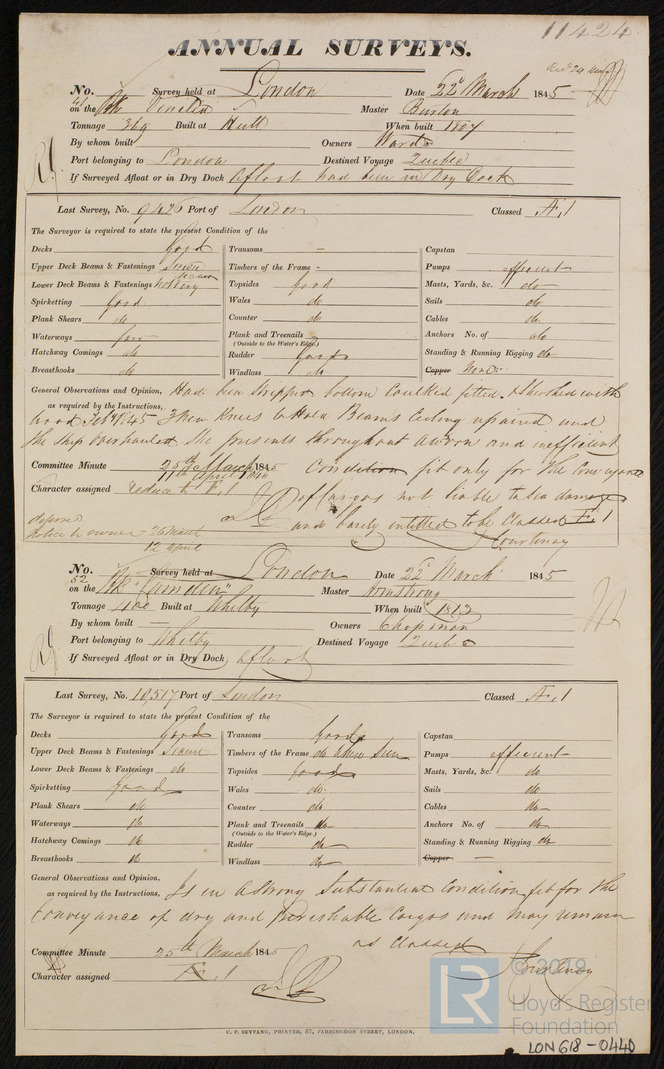 11424
ANNUAL SURVEYS.
No. 41 Survey held at London Date 22d March 1845
on the Bk Venilia Master Burton
Tonnage 369 Built at Hull When built 1807
By whom built Owners Ward
Port belonging to London Destined Voyage Quebec
If Surveyed Afloat or in Dry Dock Afloat had been in Dry Dock
Last Survey, No. 9426 Port of London Classed Æ 1
The Surveyor is required to state the present Condition of the
Decks Good Transoms - Capstan
Upper Deck Beams & Fastenings Secure Timbers of the Frame - Pumps efficient
Lower Deck Beams & Fastenings Topsides good Masts, Yards, &c. do
Spirketting Good Wales do Sails do
Plank Shears do Counter do Cables do
Waterways Plank and Treenails Anchors No. of do
(Outside to the Water's Edge.)
Hatchway Comings do Rudder Good Standing & Running Rigging do
Breasthooks do Windlass do Copper
General Observations and Opinion, Has been Stripped bottom Caulked felted & Sheathed with
as required by the Instructions, wood Feby 1845 - 3 New Knees to Hold Beams Ceiling repaired and
the Ship overhauled She presents throughout a worn and inefficient
Committee Minute 25th March 1845 Condition fit only for the Conveyance
11th April 1845
Character assigned reduce to Æ 1 of Cargos not liable to Sea damage
and barely entitled to be Classed Æ 1
Notice to owner 26 March
12 April
J Courtenay
No. 52 Survey held at London Date 22d March 1845
on the Bk "Camden" Master Armstrong
Tonnage 400 Built at Whitby When built 1813
By whom built — Owners Chapman
Port belonging to Whitby Destined Voyage Quebec
If Surveyed Afloat or in Dry Dock Afloat
Last Survey, No. 10,517 Port of London Classed Æ 1
The Surveyor is required to state the present Condition of the
Decks Good Transoms Good Capstan
Upper Deck Beams & Fastenings Secure Timbers of the Frame do where Seen Pumps efficient
Lower Deck Beams & Fastenings do Topsides Good Masts, Yards, &c. do
Spirketting Good Wales do Sails do
Plank Shears do Counter do Cables do
Waterways do Plank and Treenails do Anchors No. of do
(Outside to the Water's Edge.)
Hatchway Comings do Rudder do Standing & Running Rigging do
Breasthooks do Windlass do Copper —
General Observations and Opinion, Is in a Strong Substantial Condition fit for the
as required by the Instructions,
Conveyance of dry and Perishable Cargos and may remain
as Classed
Committee Minute 25th March 1845
J Courtenay
Character assigned Æ 1
C. F. SEYFANG, PRINTER, 57, FARRINGDON STREET, LONDON.
LR
© 2019
Lloyd's Register
Foundation
LON618-0440